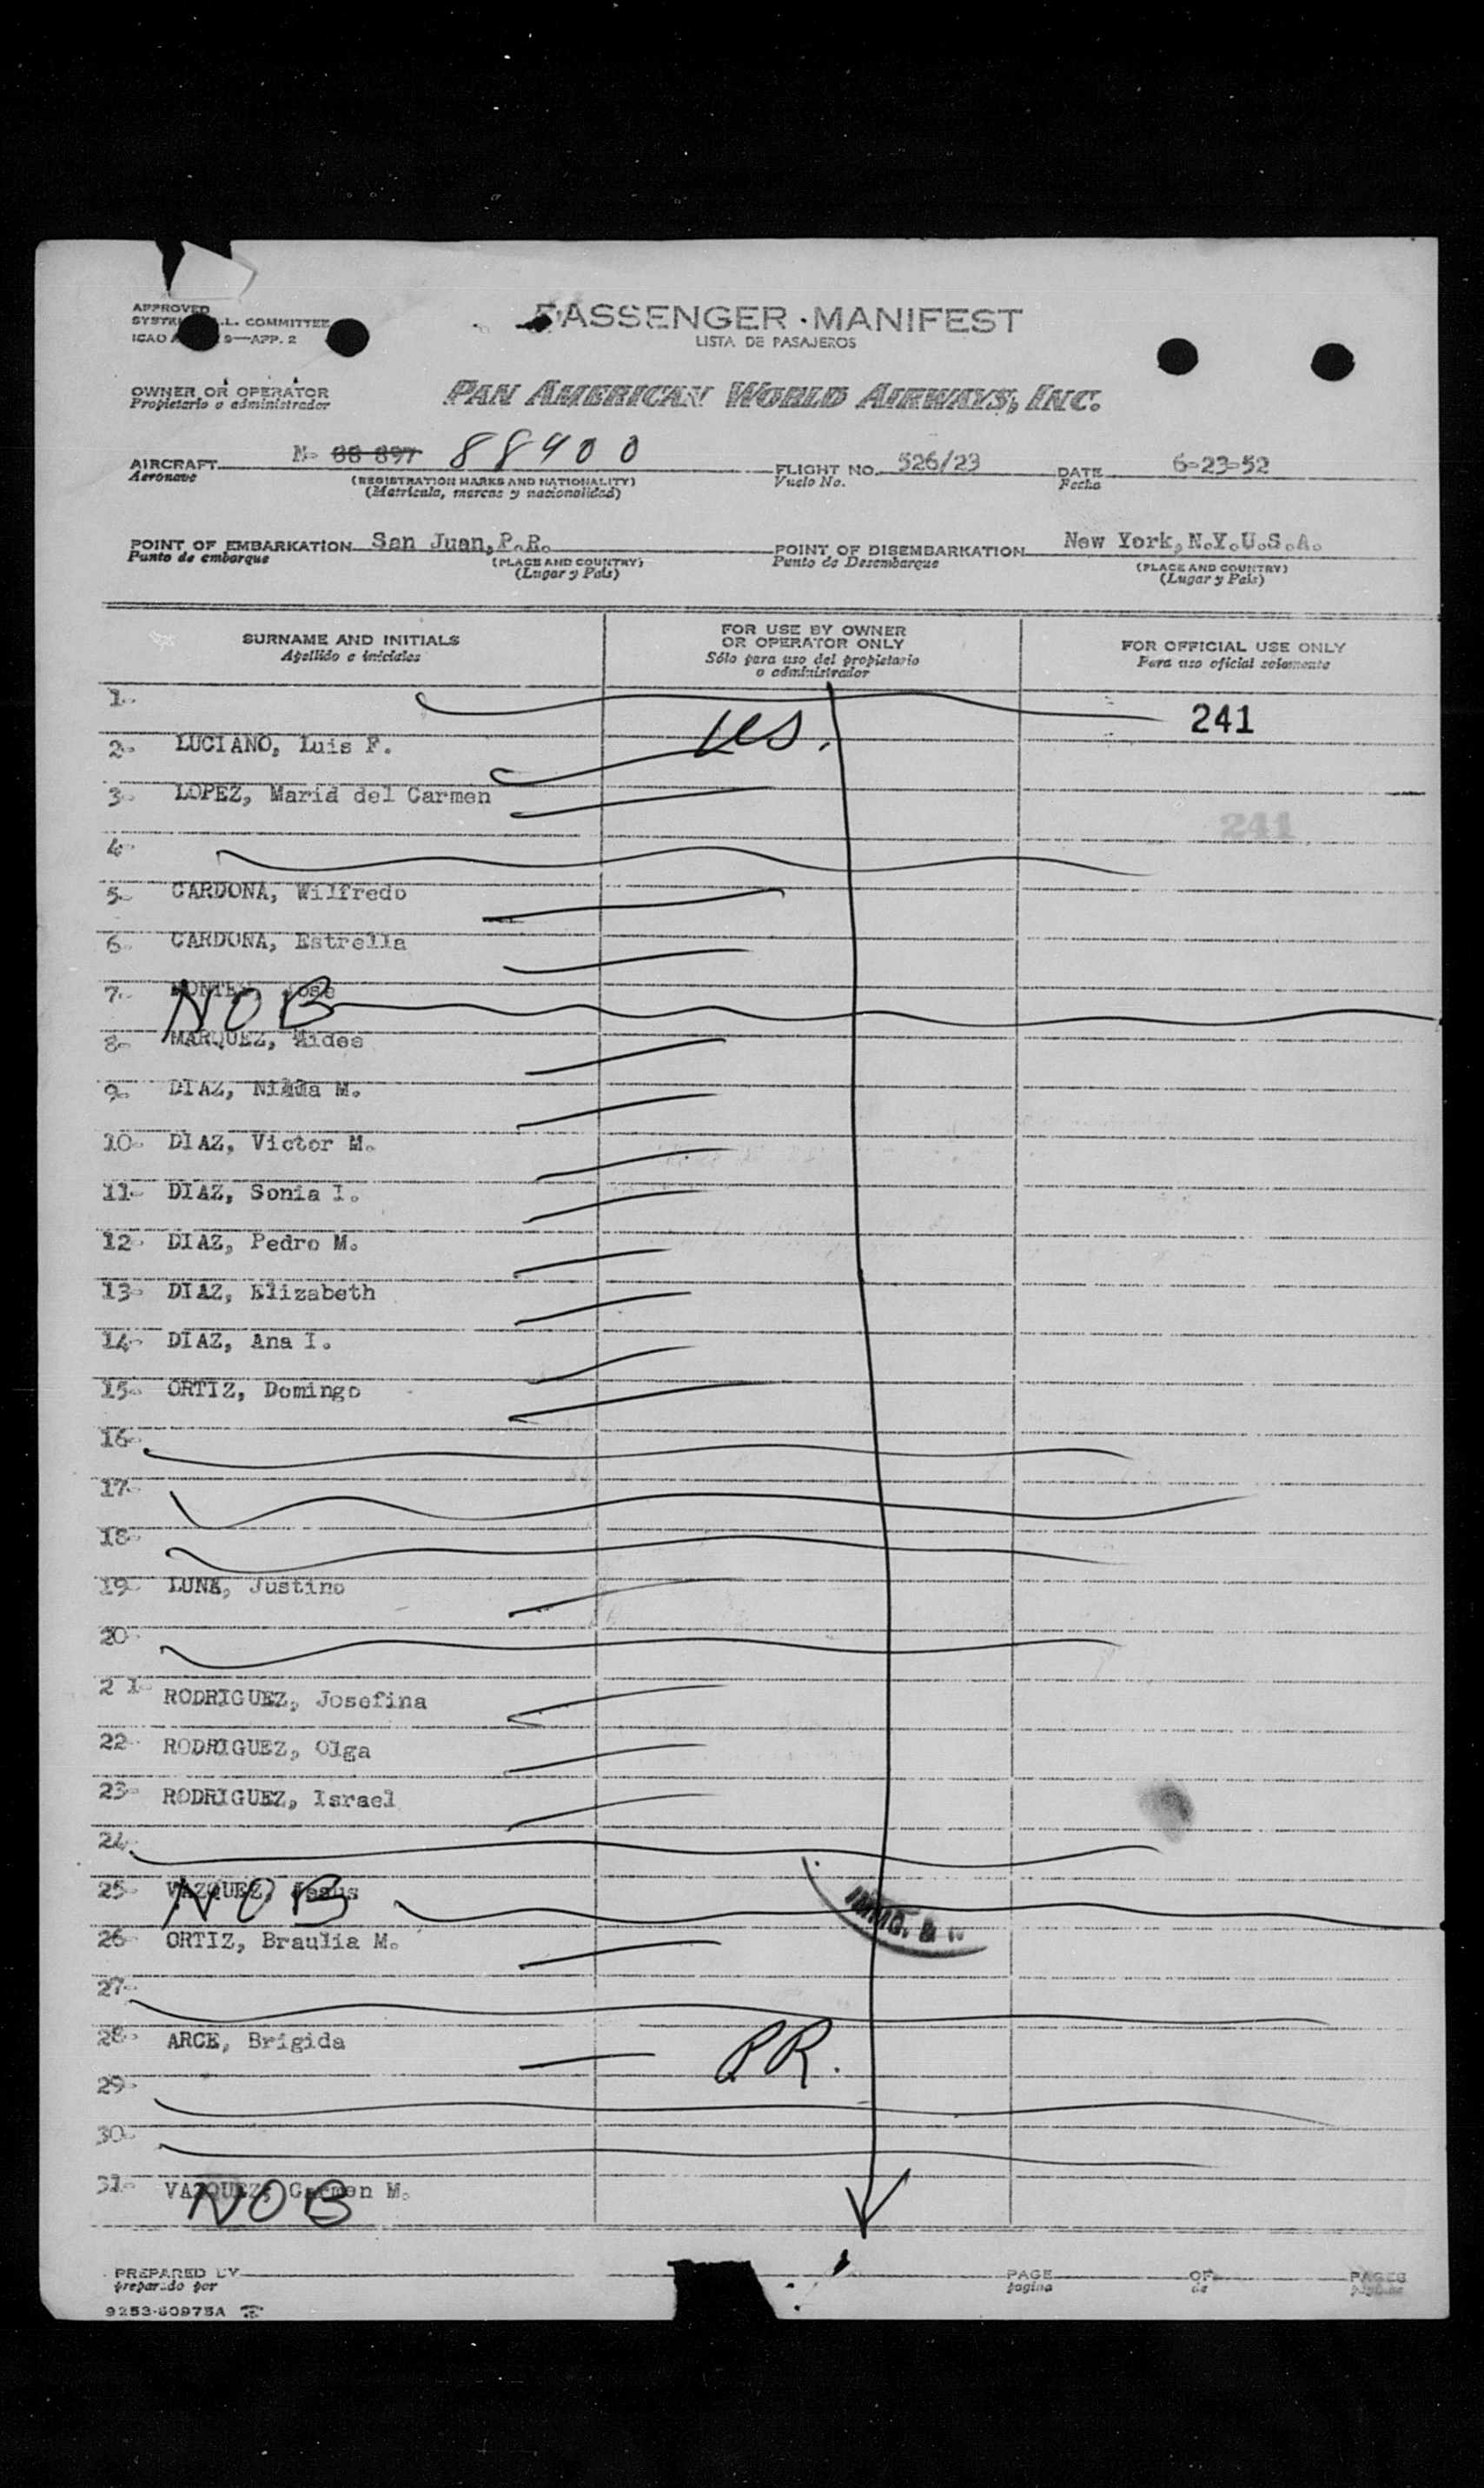 APPROVED
L. COMMITTEE
ICAO 9—APP. 2
PASSENGER · MANIFEST
LISTA DE PASAJEROS
OWNER OR OPERATOR
Propietario o administrador
PAN AMERICAN WORLD AIRWAYS, INC.
AIRCRAFT N- 88 897 88900
Aeronave
(REGISTRATION MARKS AND NATIONALITY)
(Matrícula, marcas y nacionalidad)
FLIGHT NO. 526/23
Vuelo No.
DATE 6-23-52
Fecha
POINT OF EMBARKATION San Juan, P.R.
Punto de embarque
(PLACE AND COUNTRY)
(Lugar y País)
POINT OF DISEMBARKATION New York, N.Y.U.S.A.
Punto de Desembarque
(PLACE AND COUNTRY)
(Lugar y País)
SURNAME AND INITIALS
Apellido e iniciales
FOR USE BY OWNER
OR OPERATOR ONLY
Sólo para uso del propietario
o administrador
FOR OFFICIAL USE ONLY
Para uso oficial solamente
1- 241
2- LUCIANO, Luis F. US.
3- LOPEZ, Maria del Carmen
241
4-
5- CARDONA, Wilfredo
6- CARDONA, Estrella
7- Jose NOB
8- MARQUEZ, Aides
9- DIAZ, M.
10- DIAZ, Victor M.
11- DIAZ, Sonia I.
12- DIAZ, Pedro M.
13- DIAZ, Elizabeth
14- DIAZ, Ana I.
15- ORTIZ, Domingo
16-
17-
18-
19- LUNA, Justino
20-
21- RODRIGUEZ, Josefina
22- RODRIGUEZ, Olga
23- RODRIGUEZ, Israel
24-
25- VAZQUEZ, Jesus NOB
IMMG. &
26- ORTIZ, Braulia M.
27-
28- ARCE, Brigida PR.
29-
30-
31- VAZQUEZ, Carmen M. NOB
PREPARED BY
preparado por
PAGE
pagina
OF
de
PAGES
páginas
9253-60975A